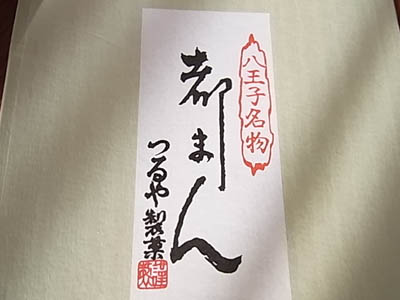 八王子名物
都まん
つるや製菓